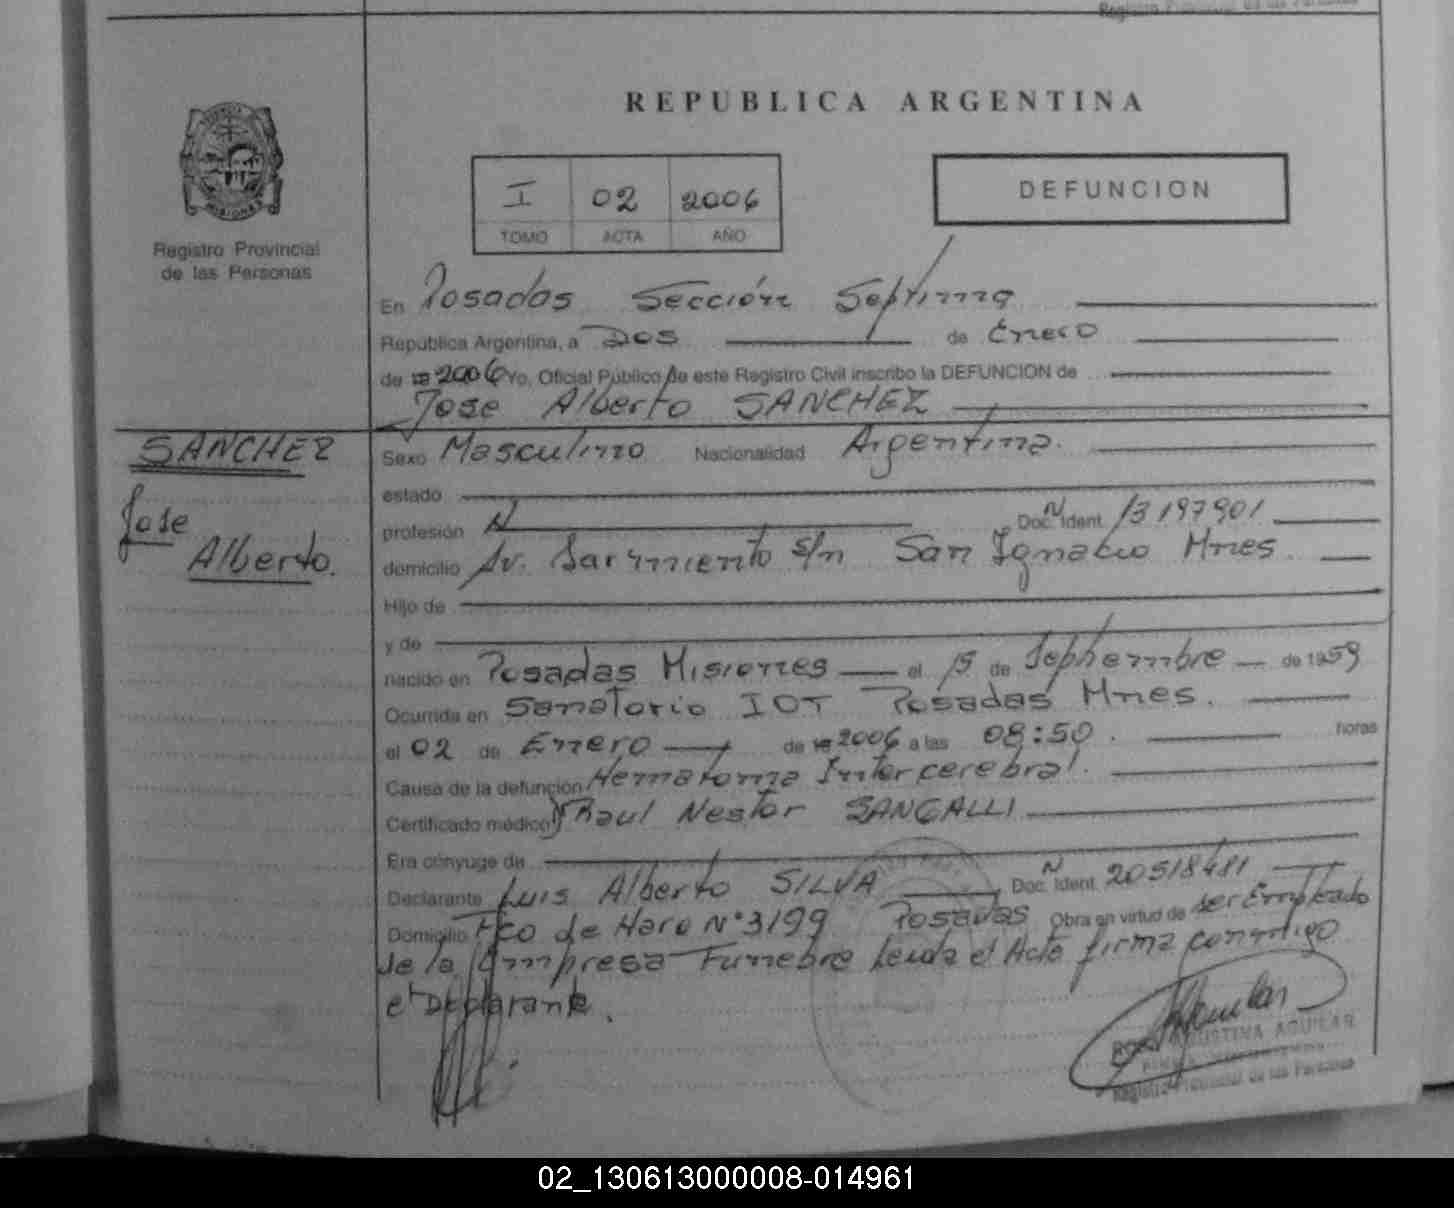 Registro Provincial de las Personas
REPUBLICA ARGENTINA
PROVINCIA
MISIONES
Registro Provincial
de las Personas
I 02 2006
TOMO ACTA AÑO
DEFUNCION
En Posadas Sección Septima
República Argentina, a Dos de Enero
de 19 2006 Yo, Oficial Público de este Registro Civil inscribo la DEFUNCION de
Jose Alberto SANCHEZ
SANCHEZ
Jose
Alberto.
Sexo Masculino Nacionalidad Argentina.
estado
profesión Doc. Ident. N 13197901
domicilio Av. Sarmiento s/n San Ignacio Mnes
Hijo de
y de
nacido en Posadas Misiones el 15 de Septiembre de 1959
Ocurrida en Sanatorio IOT Posadas Mnes.
el 02 de Enero de 19 2006 a las 08:50. horas
Causa de la defunción Hematoma Intercerebral.
Certificado médico Raul Nestor SANGALLI
Era cónyuge de
Declarante Luis Alberto SILVA Doc. Ident. N 20518481
Domicilio Fco de Haro N°3199 Posadas Obra en virtud de ser Empleado
de la Empresa Funebre Leida el Acta firma conmigo
el Declarante.
AGUSTINA AGUILAR
Registro Provincial de las Personas
02_130613000008-014961